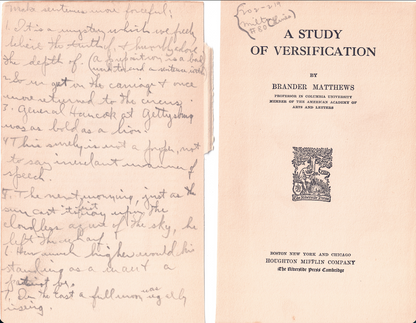 Make sentences more forceful;
1. It is a mystery which we freely
believe the truth of, & humbly
the depth of. (a preposition is a bad
word to end a sentence with)
2. & we got in the carriage & once
more returned to the circus.
3. General Hancock at Gettysburg
was as bold as a lion.
4 This surely is not a proper, not
to say manner of
speech.
5. The next morning, just as the
sun cast its upon the
cloudless of the sky, he
left the wharf.
6. How much higher would his
standing as a & a
7. In the east a full moon was
rising.
A STUDY
OF VERSIFICATION
BY
BRANDER MATTHEWS
PROFESSOR IN COLUMBIA UNIVERSITY
MEMBER OF THE AMERICAN ACADEMY OF
ARTS AND LETTERS
BOSTON NEW YORK AND CHICAGO
HOUGHTON MIFFLIN COMPANY
The Riverside Press Cambridge